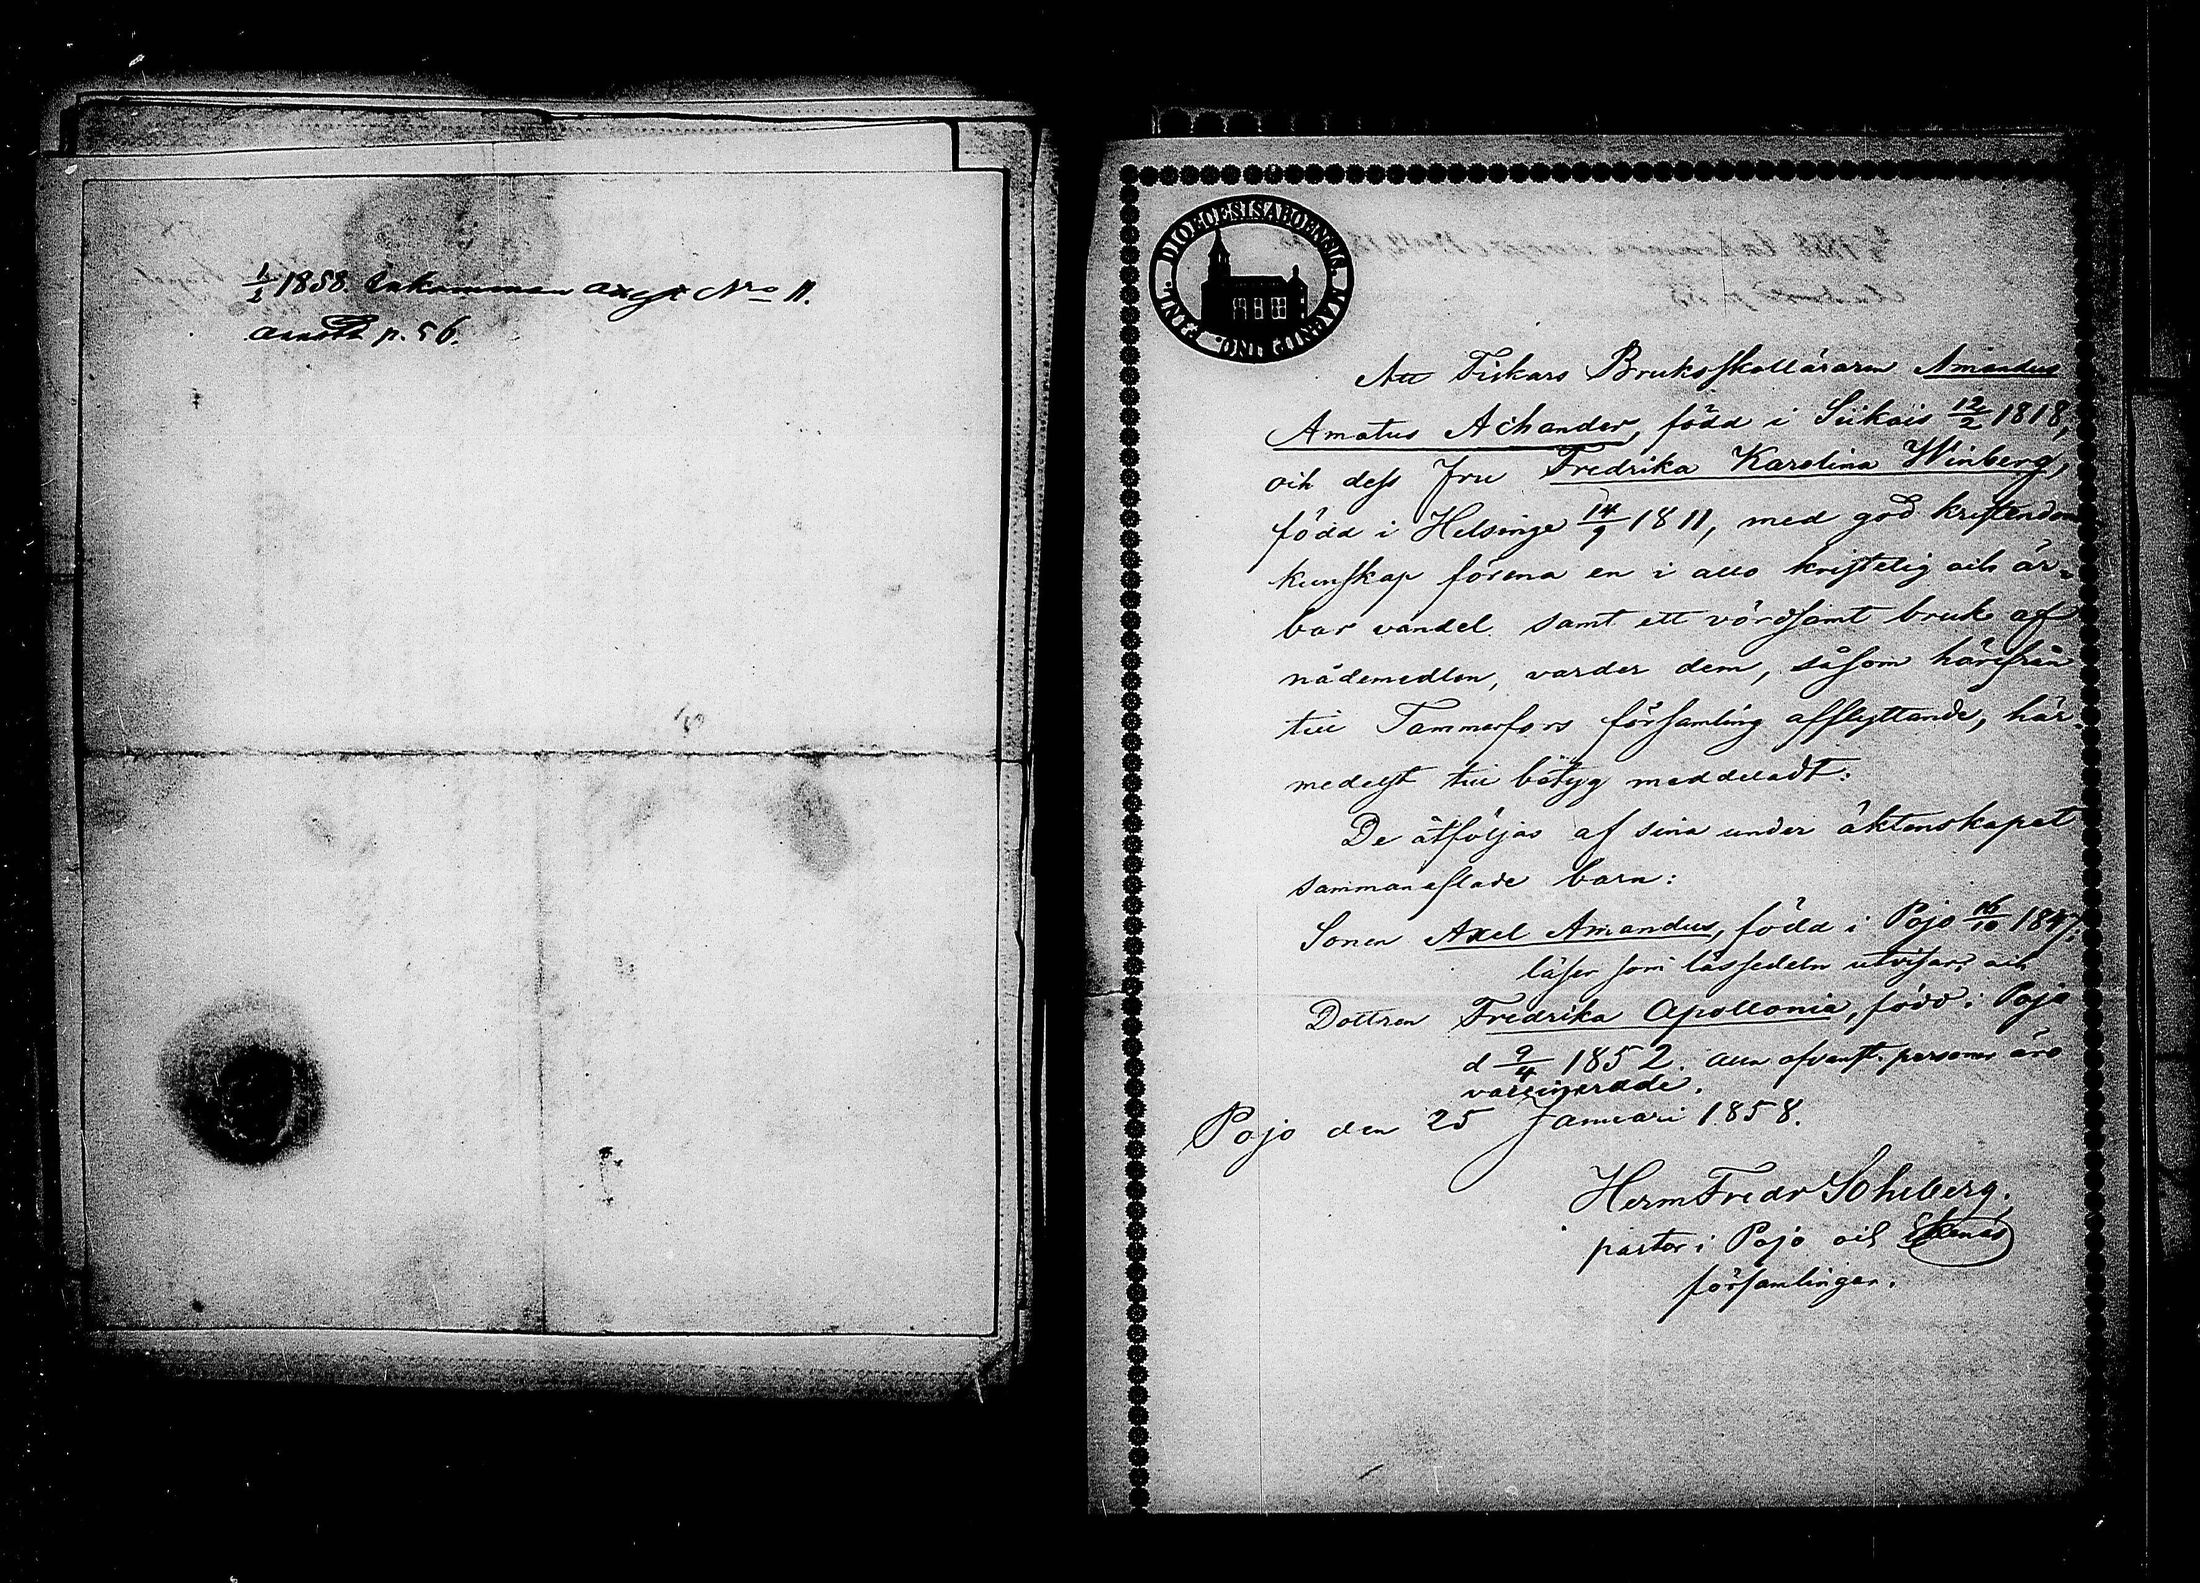 1/2 1858. Inkommen
Nro 11.
p. 56.
DIOECESIS ABOENSIS. MAGNUS DUC. FINL.
Att Fiskars Bruksskolläraren Amandus
Amatus Achander, född i Siikais 12/2 1818,
och dess fru Fredrika Karolina Winberg,
född i Helsinge 14/9 1811, med god kristendoms
kunskap förena en i allo kristelig och är-
bar vandel samt ett vördsamt bruk af
nådemedlen, varder dem, såsom härifrån
till Tammerfors församling afflyttande, här
medelst till bötyg meddeladt.
De åtföljas af sina under äktenskapet
sammanaflade barn:
Sonen Axel Amandus, född i Pojo 16/10 1847,
läser som lässedeln utvisar, och
Dottren Fredrika Apollonia, född i Pojo
d 9/4 1852. alla ofvanst. personer äro
vaccinerade.
Pojo den 25 Januari 1858.
Herm Fredr Sohlberg.
pastor i Pojo och Ekenäs
församlingar.